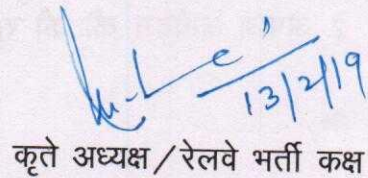 13/2/19
कृते अध्यक्ष/रेलवे भर्ती कक्ष